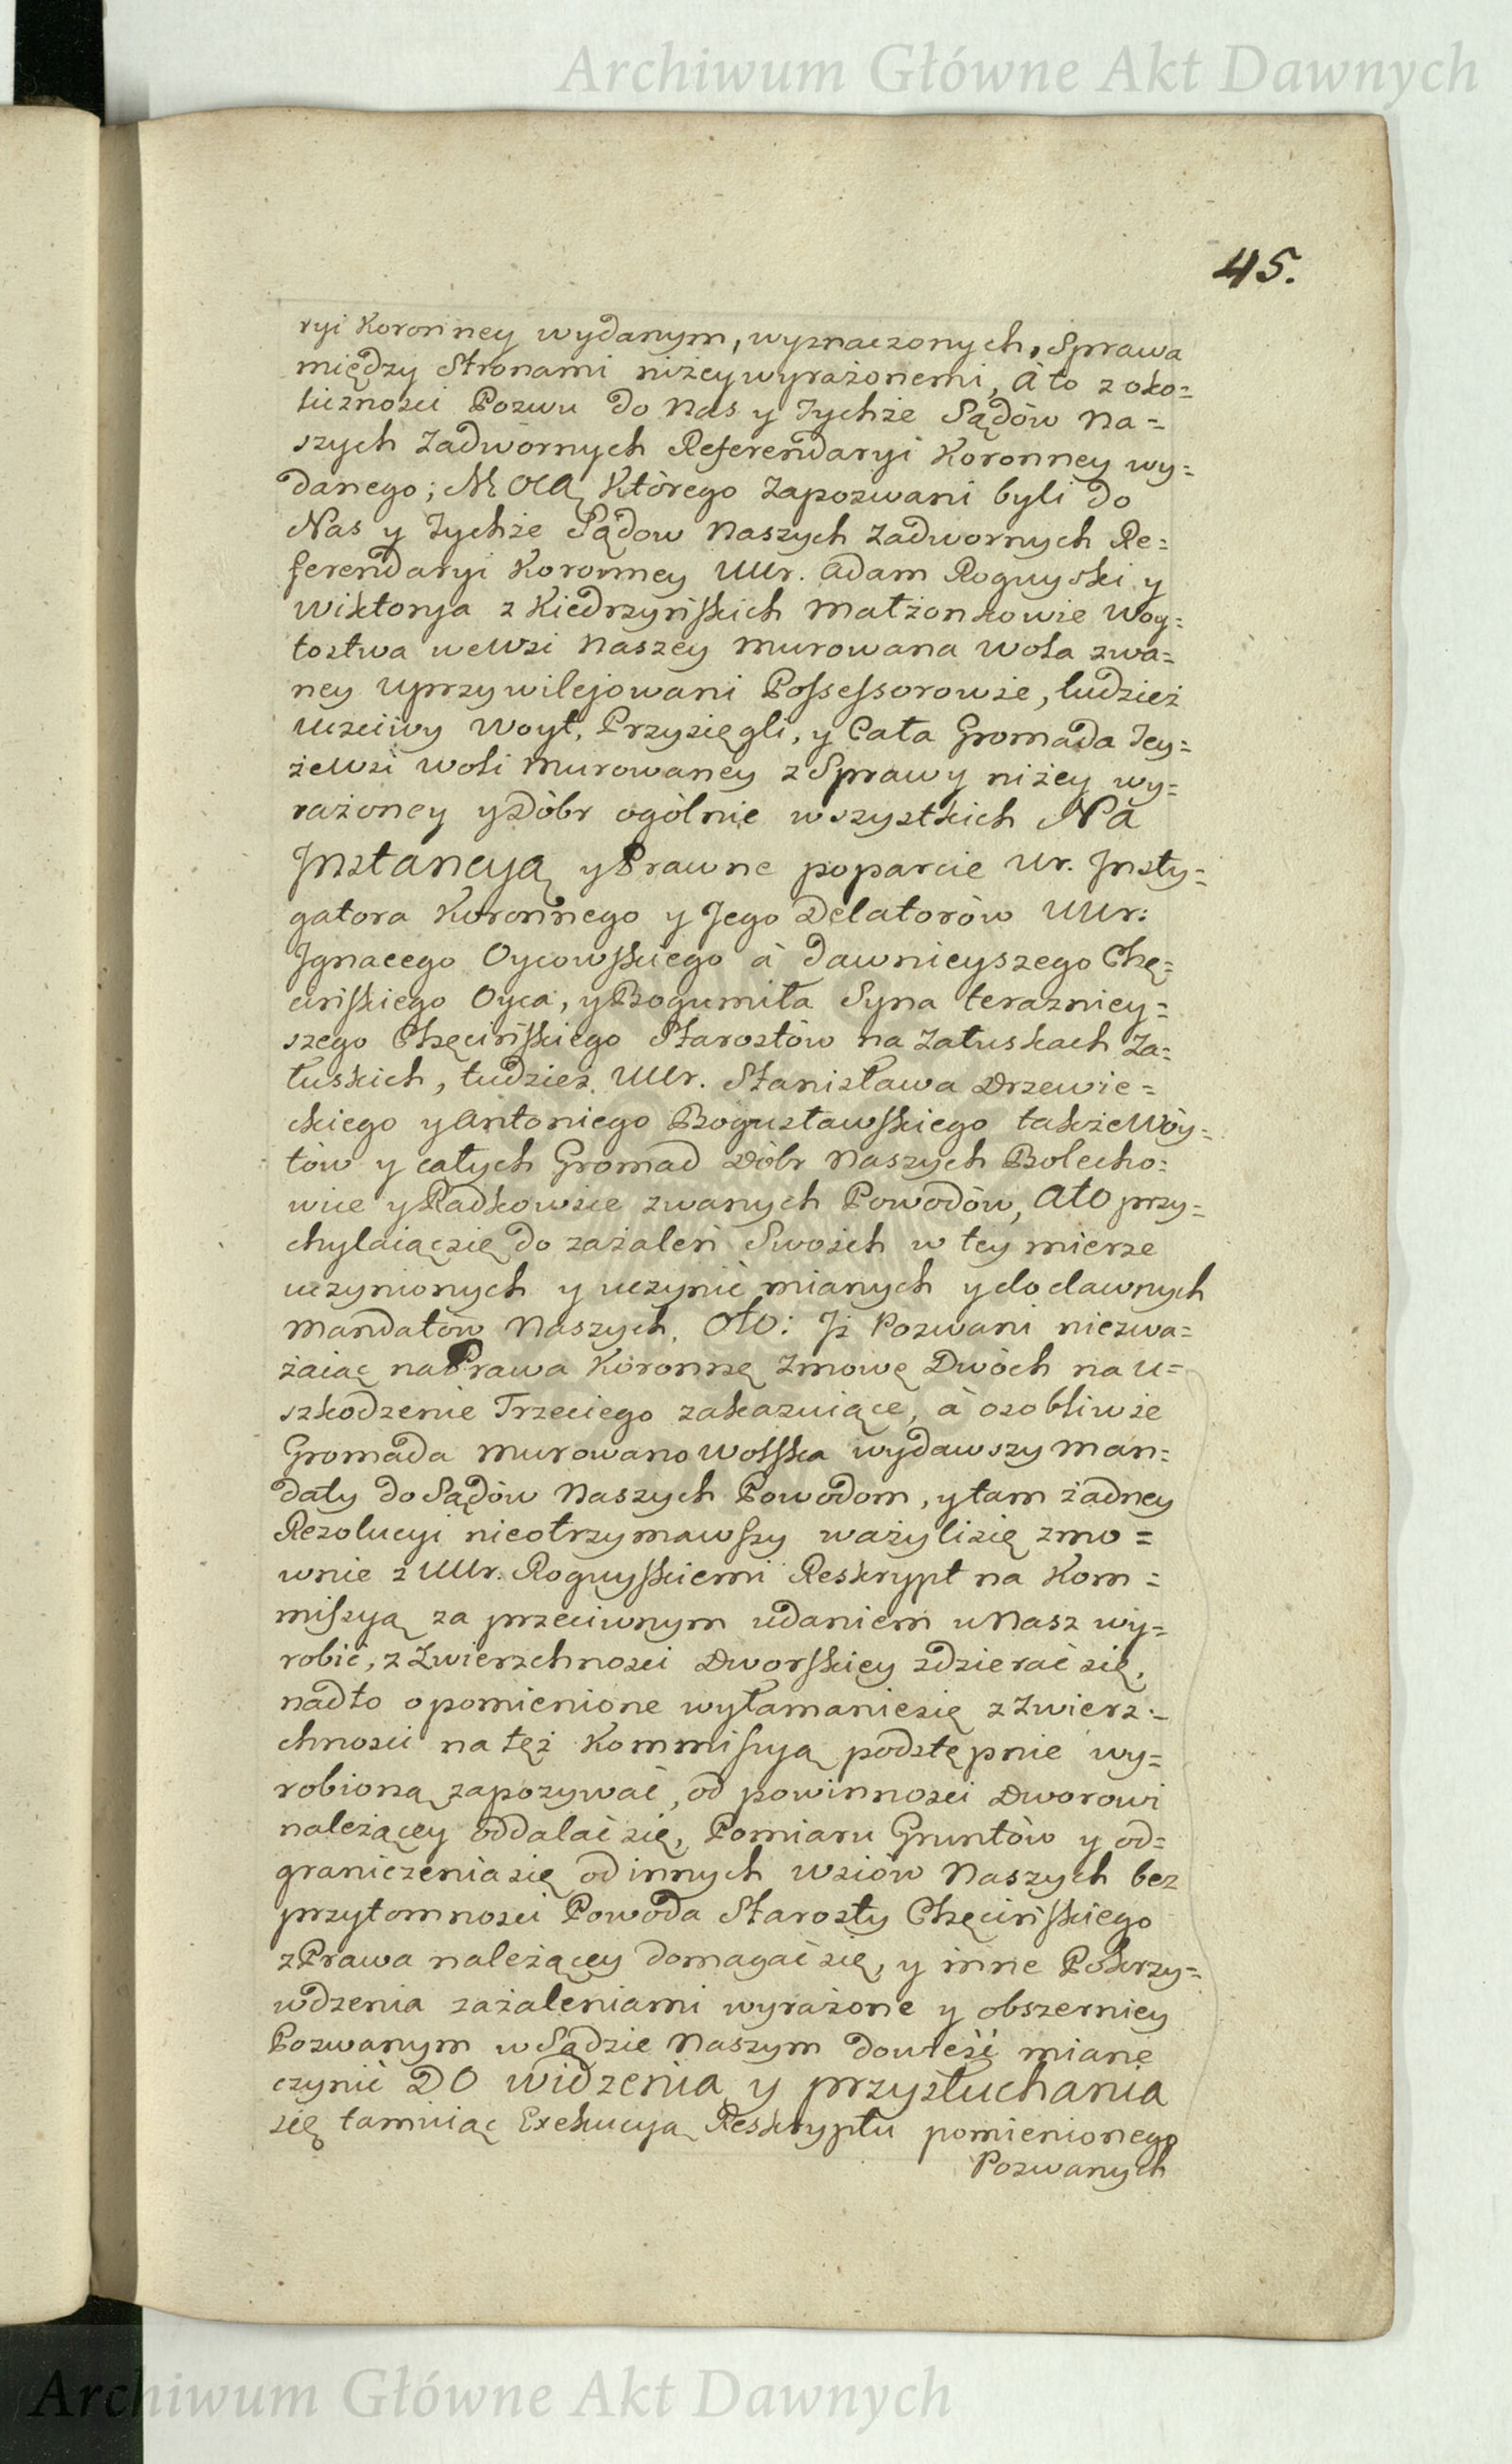 Archiwum Główne Akt Dawnych
45.
ryi Koronney wydanym, wyznaczonych, Sprawa
między Stronami niżey wyrażonemi, A to z oko=
liczności Pozwu do Nas y Tychże Sądów Na=
szych Zadwornych Referendaryi Koronney wy=
danego; Mocą Którego Zapozwani byli do
Nas y Tychże Sądow Naszych Zadwornych Re=
ferendaryi Koronney UUr. Adam Roguyski y
Wiktorya z Kiedrzyńskich Małżonkowie Woy=
tostwa we Wsi Naszey Murowana Wola zwa=
ney Uprzywilejowani Possessorowie, tudzież
Uczciwy Woyt, Przysięgli, y Cała Gromada Tey=
że Wsi Woli Murowaney z Sprawy niżey wy=
rażoney y Dóbr ogólnie wszystkich Na
Instancyą y Prawne poparcie Ur. Insty=
gatora Koronnego y Jego Delatorów UUr:
Ignacego Oycowskiego à dawnieyszego Chę=
cińskiego Oyca, y Bogumiła Syna teraźniey=
szego Chęcińskiego Starostów na Załuskach Za=
łuskich, tudzież UUr. Stanisława Drzewie=
ckiego y Antoniego Bogusławskiego także Wóy=
tów y całych Gromad Dóbr Naszych Bolecho=
wice y Radkowice zwanych Powodów, Ato przy=
chylaiąc się do zażaleń Swoich w tey mierze
uczynionych y uczynić mianych y do dawnych
Mandatów Naszych. Oto: Iż Pozwani niezwa=
żaiąc na Prawa Koronne Zmowę Dwóch na u=
szkodzenie Trzeciego zakazuiące, à osobliwie
Gromada Murowano Wolska wydawszy Man=
daty do Sądów Naszych Powodom, y tam żadney
Rezolucyi nieotrzymawszy ważyli się zmo=
wnie z UUr. Roguyskiemi Reskrypt na Kom=
missyą za przeciwnym udaniem u Nasz wy=
robić, z Zwierzchności Dworskiey zdzierać się,
nadto o pomienione wyłamanie się z Zwierz=
chności na też Kommissyą podstępnie wy=
robioną zapozywać, od powinności Dworowi
należącey oddalać się, Pomiaru Gruntów y od=
graniczenia się od innych wsiów Naszych bez
przytomności Powoda Starosty Chęcińskiego
z Prawa należącey domagać się, y inne Pokrzy=
wdzenia zażaleniami wyrażone y obszerniey
Pozwanym w Sądzie Naszym dowieść miane
czynić DO widzenia y przysłuchania
się tamuiąc Exekucyą Reskryptu pomienionego
Pozwanych
Archiwum Główne Akt Dawnych